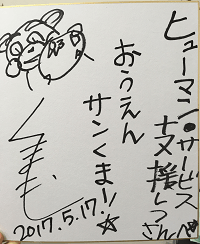 ヒューマン・サービス
支援しつさんへ
おうえん
サンくまー!☆
くまモン
2017.5.17.